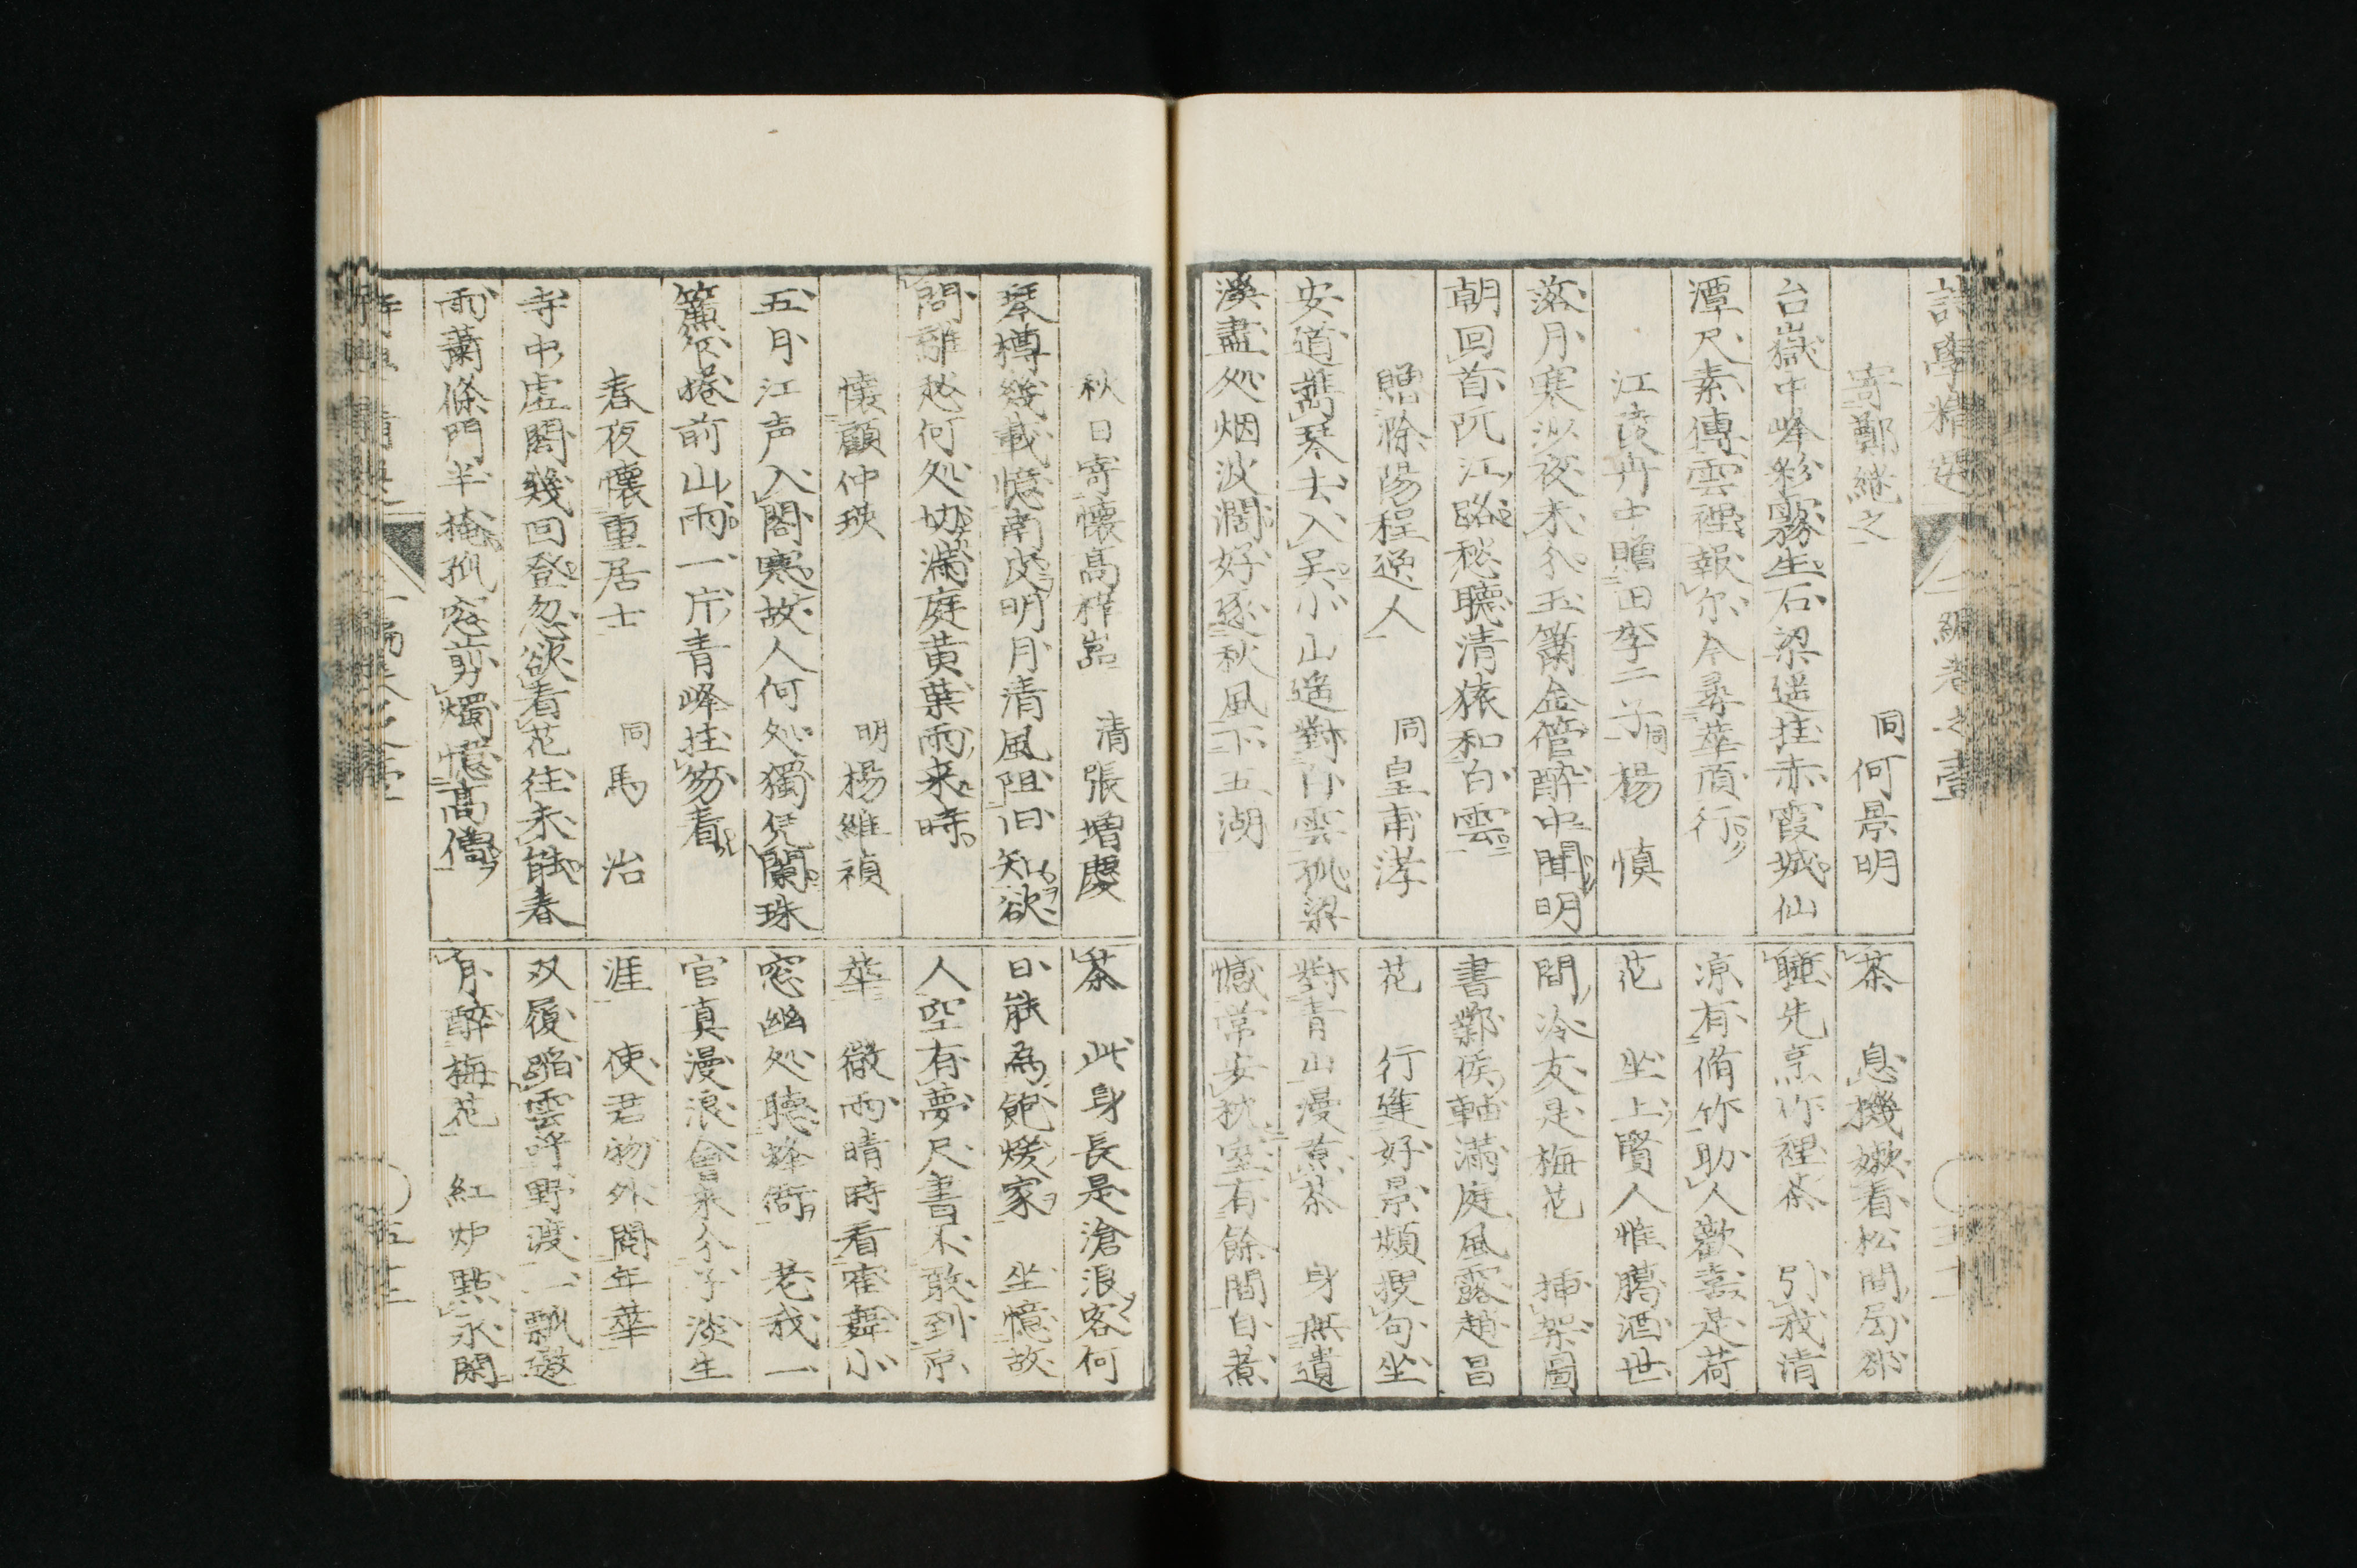 詩學精選 一編卷之壹
寄鄭継之 同何景明
台嶽中峰彩霧生石梁遥挂赤霞城仙
潭尺素傳雲裡報尓今尋華頂行
江陵舟中贈田李二子 同楊 慎
落月寒沙夜未分玉簫金管酔中聞明
朝回首阮江路愁聽清猿和白雲
贈滁陽程逸人 同皇甫涍
安道携琴去入吴小山遥對白雲孤梁
溪盡処烟波濶好逐秋風下五湖
茶 息機嫩看松間局郤
睡先烹竹裡茶 引我清
凉有脩竹助人歡喜是荷
花 坐上賢人惟勝酒世
間冷友是梅花 挿架圖
書鄴侯軸滿庭風露趙昌
花 行逢好景頻捜句坐
對青山漫煮茶 身無遺
憾常安枕室有餘閒自煮
秋日寄懷髙梓嵓 清張増慶
琴樽幾載憶南皮明月清風阻旧知欲
問離愁何処切滿庭黄葉雨来時
懐顧仲瑛 明楊維禎
五月江声入閣寒故人何処獨凭闌珠
簾巻前山雨一片青峰挂笏看
春夜懷重居士 同馬 治
寺中虚閣幾回登忽欲看花徃未能春
雨蕭條門半掩孤窓剪燭憶髙僧
茶 此身長是滄浪客何
日能為飽煖家 坐憶故
人空有夢尺書不敢到京
華 微雨晴時看崔舞小
窓幽処聴蜂衙 老我一
官真漫浪會来分子淡生
涯 使君物外閲年華
双履蹈雲許野渡一瓢邀
月酔梅花 紅炉點永閑